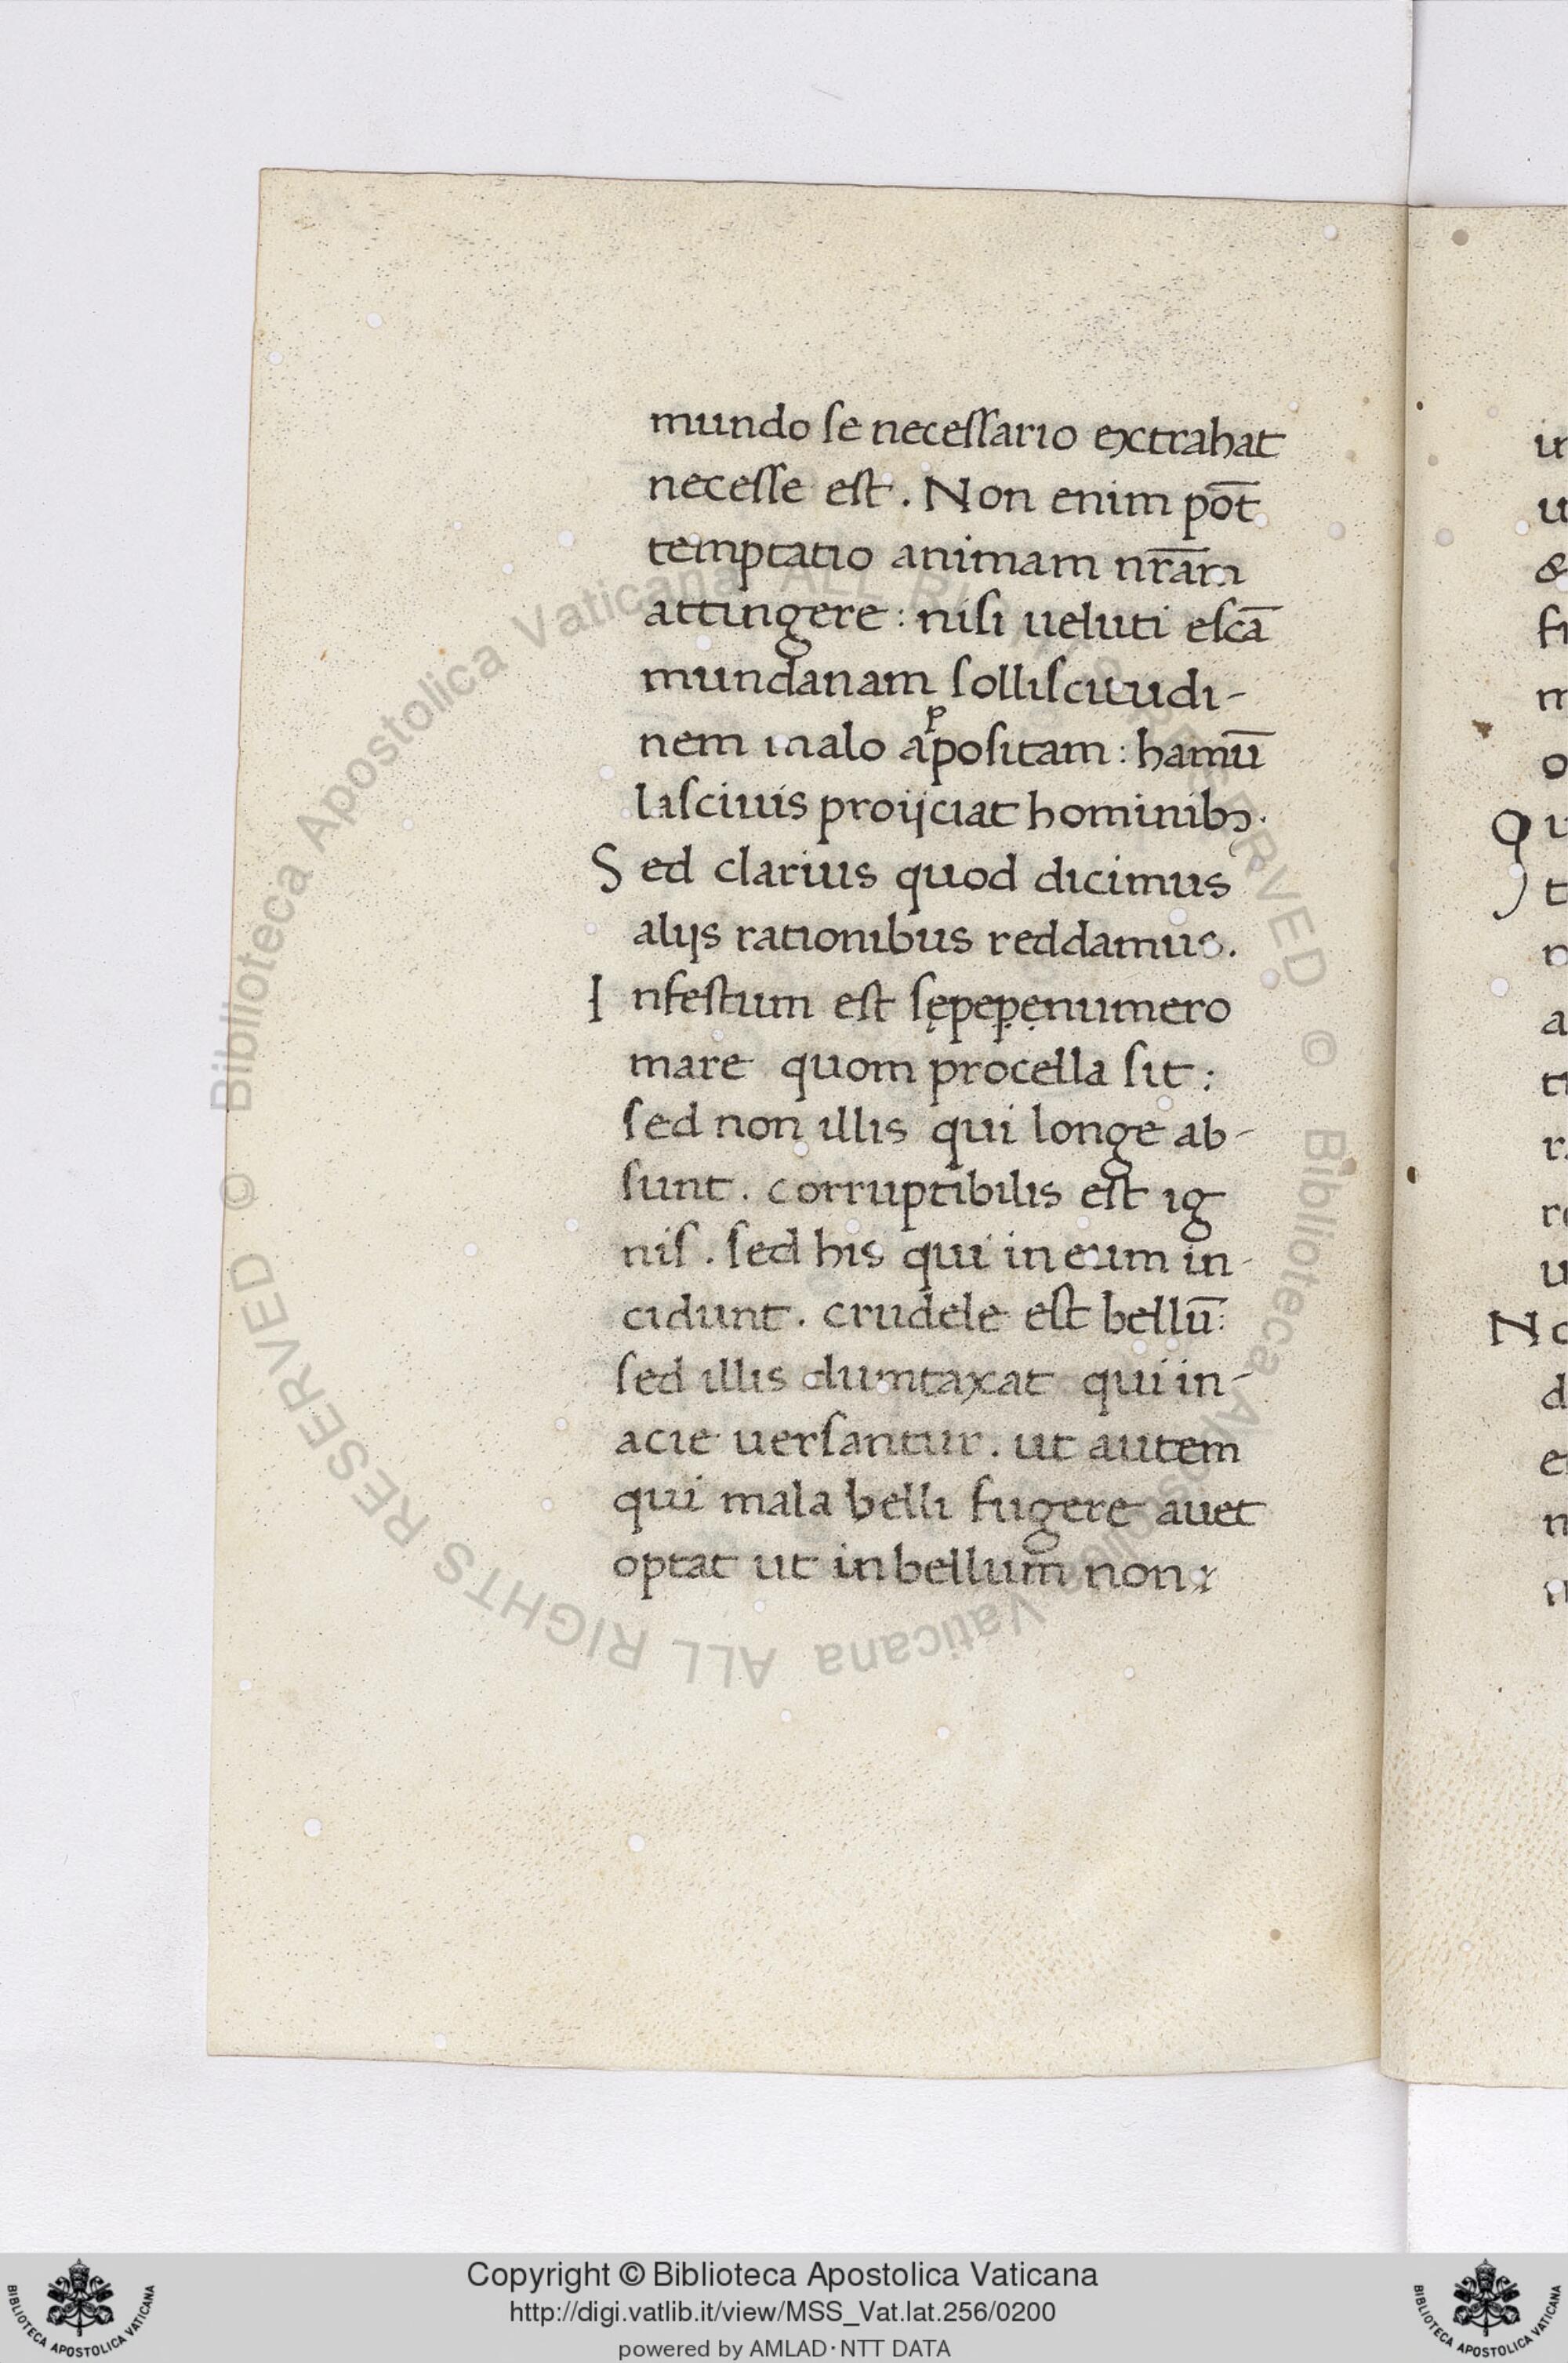 mundo se necessario extrahat
necesse est. Non enim pot̄
temptatio animam nr̄am
attingere: nisi ueluti escā
mundanam solliscitudi-
nem malo appositam: hamū
lasciuis proijciat hominibꝫ.
Sed clarius quod dicimus
alijs rationibus reddamus.
Infestum est sępepęnumero
mare quom procella sit:
sed non illis qui longe ab-
sunt. corruptibilis est ig
nis. sed his qui in eum in-
cidunt. crudele est bellū:
sed illis dumtaxat qui in-
acie uersantur. ut autem
qui mala belli fugere auet
optat ut in bellum non
in
u
&
fi
m
o
Qu
t
n
a
ti
r
re
u
No
d
e
n
Copyright © Biblioteca Apostolica Vaticana
http://digi.vatlib.it/view/MSS_Vat.lat.256/0200
powered by AMLAD·NTT DATA
© Biblioteca Apostolica Vaticana ALL RIGHTS RESERVED
© Biblioteca Apostolica Vaticana ALL RIGHTS RESERVED
BIBLIOTECA APOSTOLICA VATICANA
BIBLIOTECA APOSTOLICA VATICANA